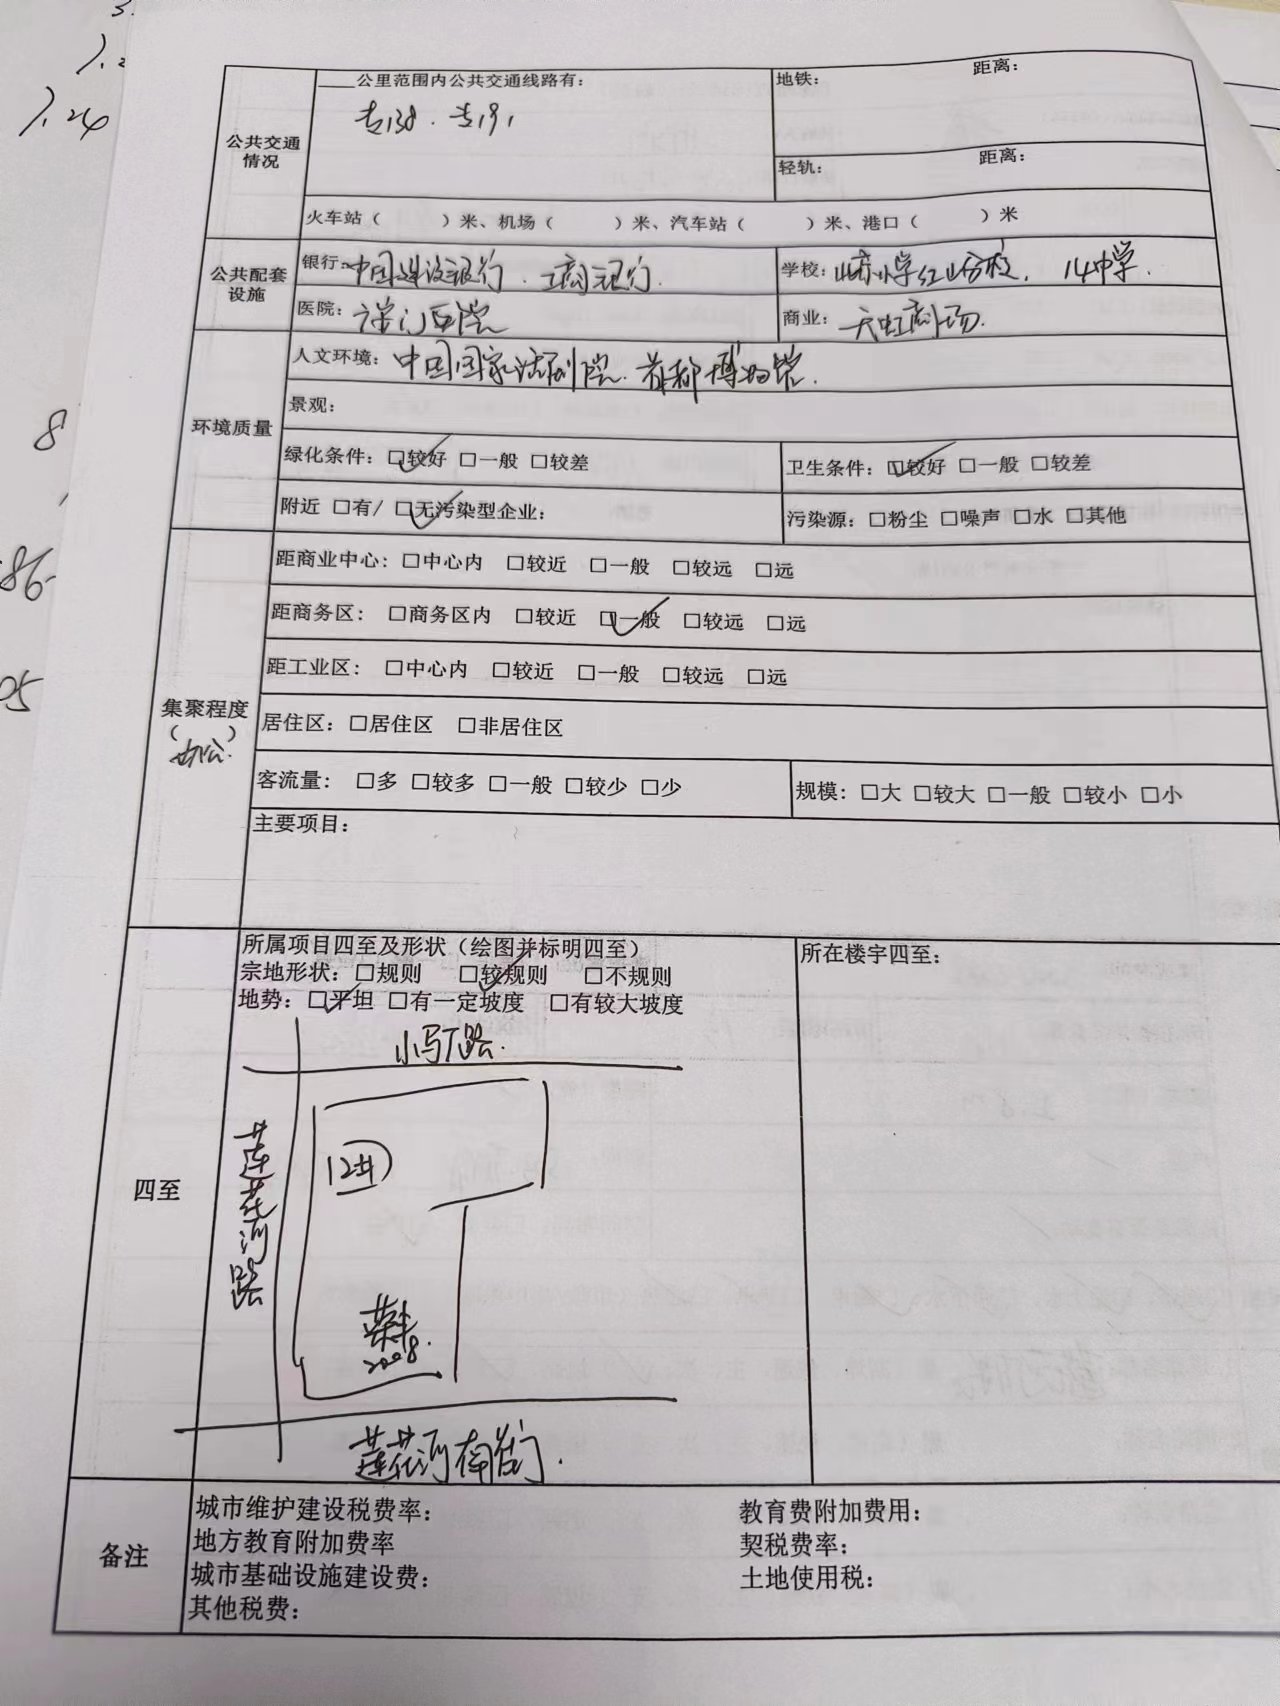 3.
1.24
8
86-
05
____公里范围内公共交通线路有：
专138．专191
地铁：
距离：
轻轨：
距离：
公共交通
情况
火车站（　　）米、机场（　　）米、汽车站（　　）米、港口（　　）米
公共配套
设施
银行：中国建设银行．工商银行．
学校：小学红山分校．14中学．
医院：门医院
商业：天虹剧场．
环境质量
人文环境：中国国家话剧院．首都博物馆．
景观：
绿化条件：☑较好 □一般 □较差
卫生条件：☑较好 □一般 □较差
附近 □有/ ☑无污染型企业：
污染源：□粉尘 □噪声 □水 □其他
集聚程度
（办公）
距商业中心：□中心内 □较近 □一般 □较远 □远
距商务区：□商务区内 □较近 ☑一般 □较远 □远
距工业区：□中心内 □较近 □一般 □较远 □远
居住区：□居住区 □非居住区
客流量：□多 □较多 □一般 □较少 □少
规模：□大 □较大 □一般 □较小 □小
主要项目：
四至
所属项目四至及形状（绘图并标明四至）
宗地形状：□规则 ☑较规则 □不规则
地势：☑平坦 □有一定坡度 □有较大坡度
所在楼宇四至：
小马厂路．
莲花河路
12#
荣丰
2008．
莲花河南街．
备注
城市维护建设税费率：
教育费附加费用：
地方教育附加费率
契税费率：
城市基础设施建设费：
土地使用税：
其他税费：